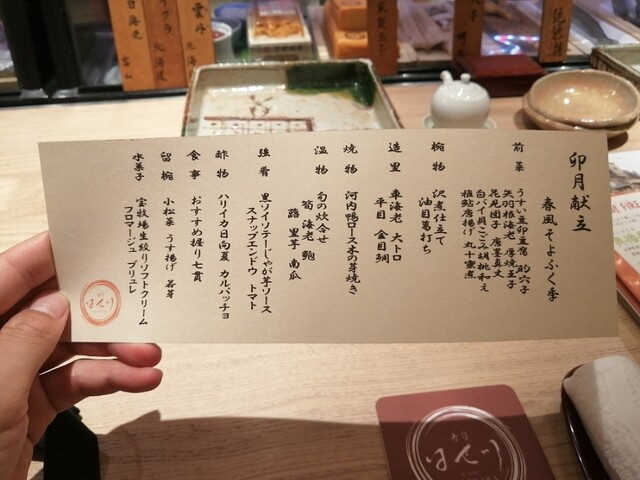 卯月献立
春風そよふく季
前菜
うすい豆卯豆腐 酌六子
矢羽根海老 唐焼玉子
花見団子 唐墨真丈
白バイ貝こごみ胡桃和え
稚鮎唐揚げ 丸十蜜煮
椀物
沢煮仕立て
油目葛打ち
造里
車海老 大トロ
平目 金目鯛
焼物
河内鴨ロース木の芽焼き
温物
旬の炊合せ
筍 海老 鮑
蕗 里芋 南瓜
強肴
黒ソイソテーじゃが芋ソース
スナップエンドウ トマト
酢物
ハリイカ日向夏 カルパッチョ
食事
おすすめ握り七貫
留椀
小松菜 うす揚げ 若芽
水菓子
宝牧場生絞りソフトクリーム
フロマージュ ブリュレ
イクラ
北海道
富山
琵琶湖